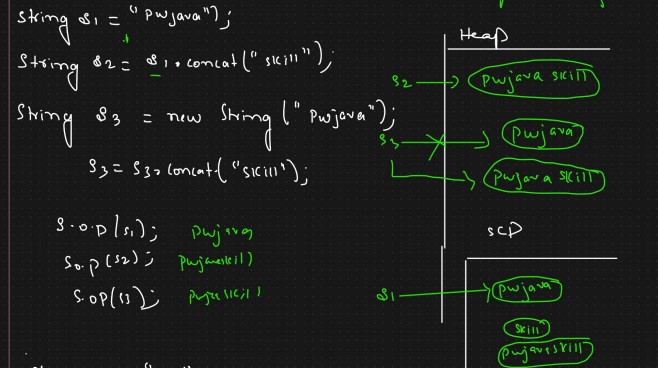 String s1 = "pwjava");
String s2 = s1.concat("skill");
String s3 = new String("pwjava");
s3 = s3.concat("skill");
S.o.p(s1); pwjava
S.o.p(s2); pwjavaskill
S.oP(s3);
Heap
s2 pwjava skill
s3 pwjava
pwjava skill
SCP
s1 pwjava
skill
pwjavaskill